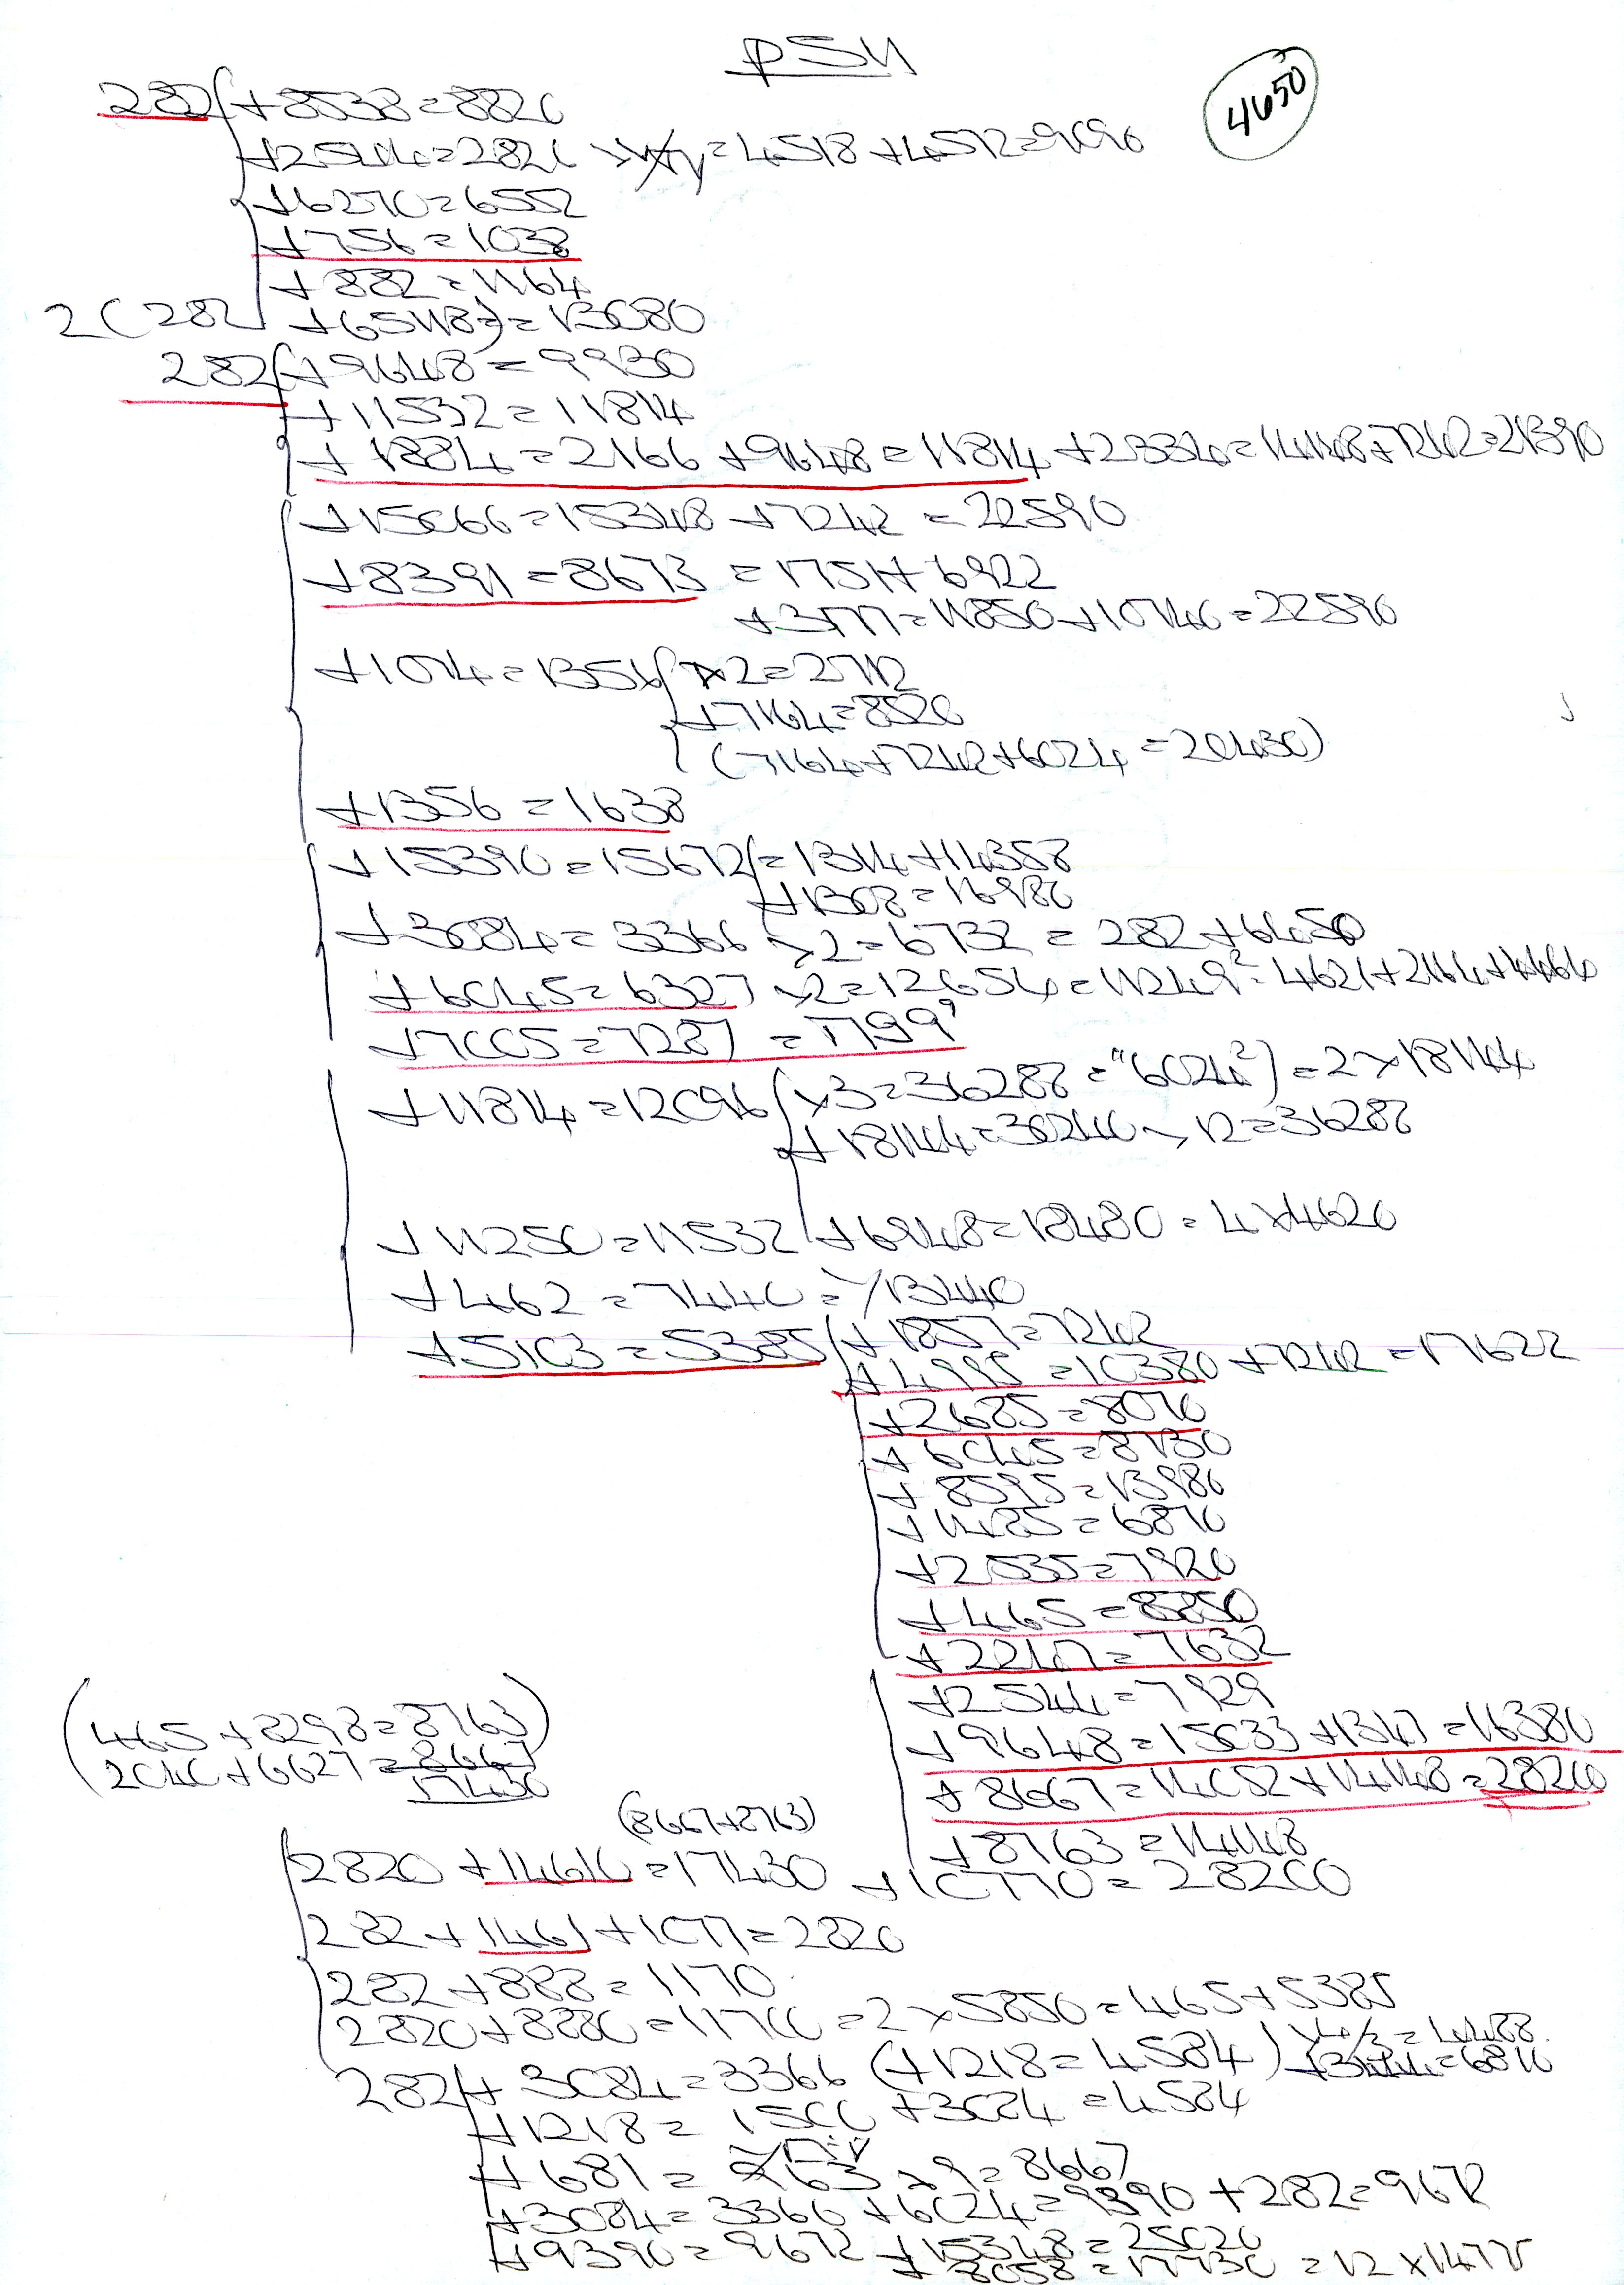 4650
282 +8538=8820
+2544=2826
+6270=6552
+756=1038
+882=1164
2(282 +6548)=13080
282 +9648=9930
+11532=11814
+1884=2166+9648=11814+2334=14148+7242=21390
+15066=15348+7242=22590
+8391=8673=1751+6922
+3177=11850+10740=22590
+1074=1356 ×2=2712
+7164=8520
(7164+7242+6024=20430)
+1356=1638
+15390=15672=1314+14358
+1308=16980
+3084=3366 ×2=6732=282+6450
+6045=6327 ×2=12654
+7005=7287
+11814=12096 ×3=36288="6024²)=2×18144
+18144=30240
+11250=11532 +6948=18480=4×4620
+462=7440
+5103=5385 +1857=7242
+4995=10380+7242=17622
+2685=8070
+6045=8130
+8595=13980
+1485=6870
+2535=7920
+465=5850
+2247=7632
+2544=7929
(465+8298=8763)
+9648=15033+1347=16380
2040+6627=8667
17430
+8667=14052+14148=28200
(8667+8763)
+8763=14148
2820+14610=17430+10770=28200
282+1461+1077=2820
282+888=1170
2820+8880=11700=2×5850=465+5385
282+3084=3366 (+1218=4584)
+1218=1500+3084=4584
+681=963 ×9=8667
+3084=3366+6024=9390+282=9672
+9390=9672+15348=25020
+8058=17730=12×1477